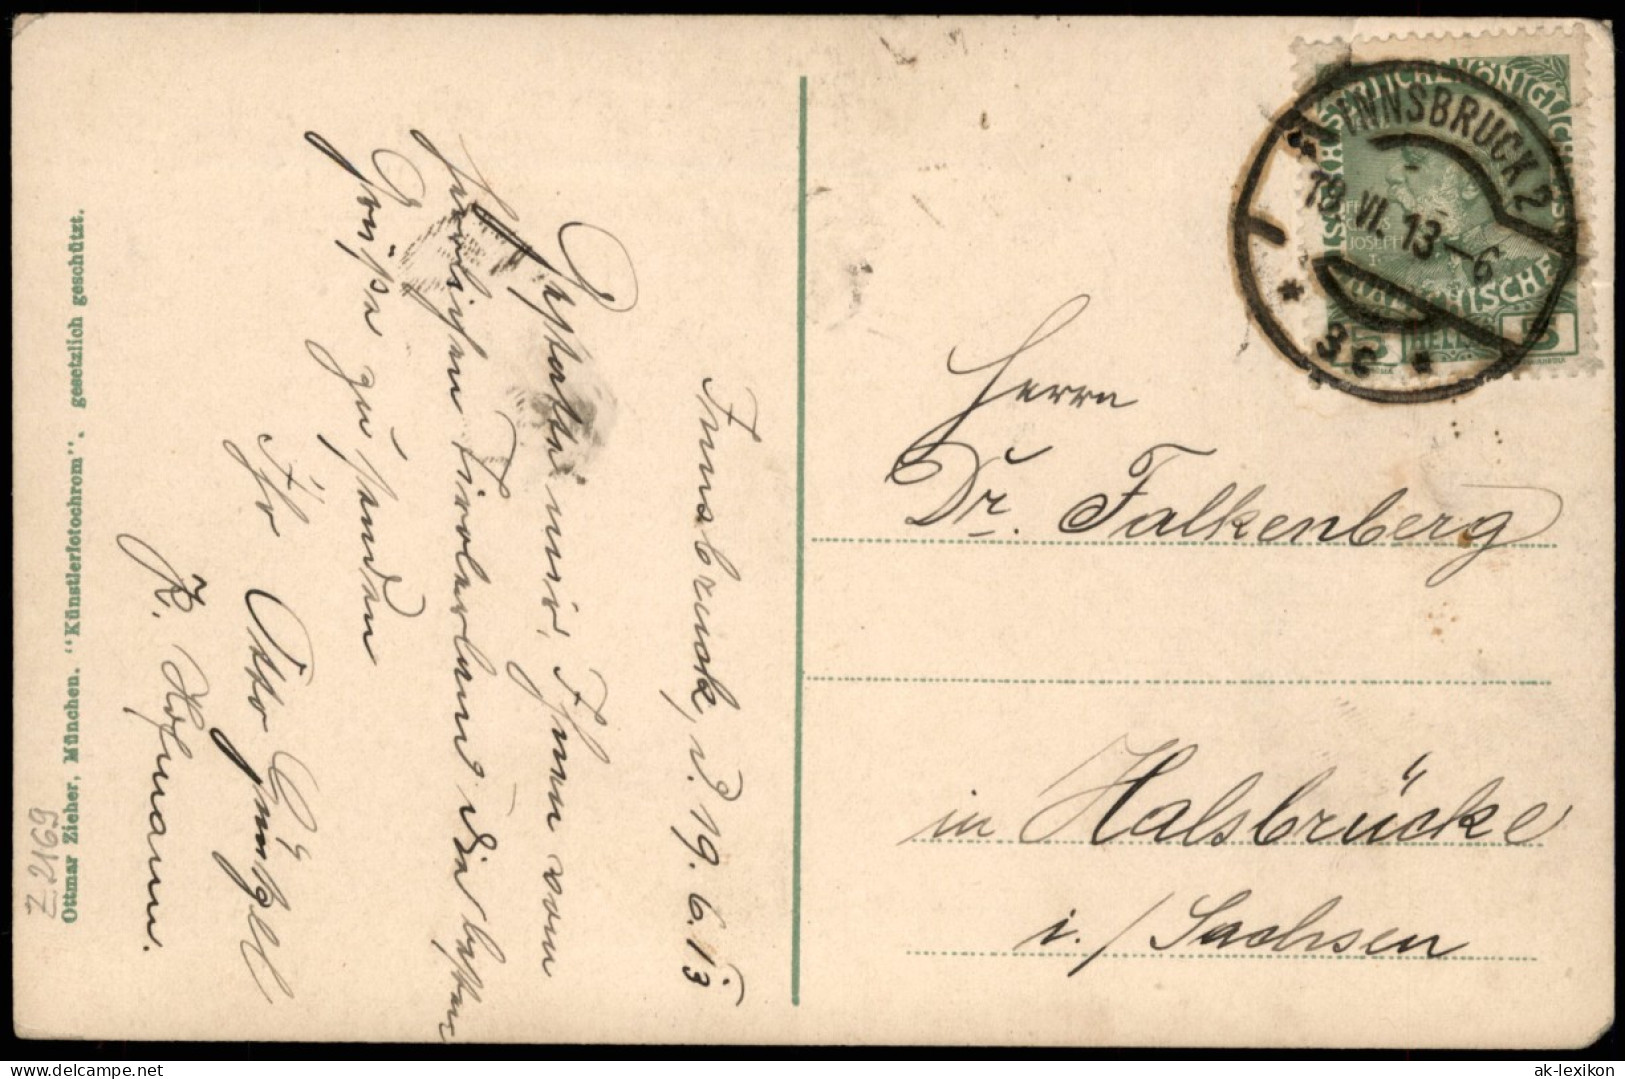 Innsbruck, d. 19. 6. 13
Gestatte mir, Ihnen vom
herrlichen Tirolerland die besten
Grüße zu senden
Ihr Otto
K. Hofmann.
Herrn
Dr. Falkenberg
in Halsbrücke
i./Sachsen
INNSBRUCK 2
19. VI. 13 - 6
* 3c *
FRANZ JOSEPH I.
5 HELLER 5
Ottmar Zieher, München. "Künstlerfotochrom". gesetzlich geschützt.
Z 2169
delcampe.net
ak-lexikon